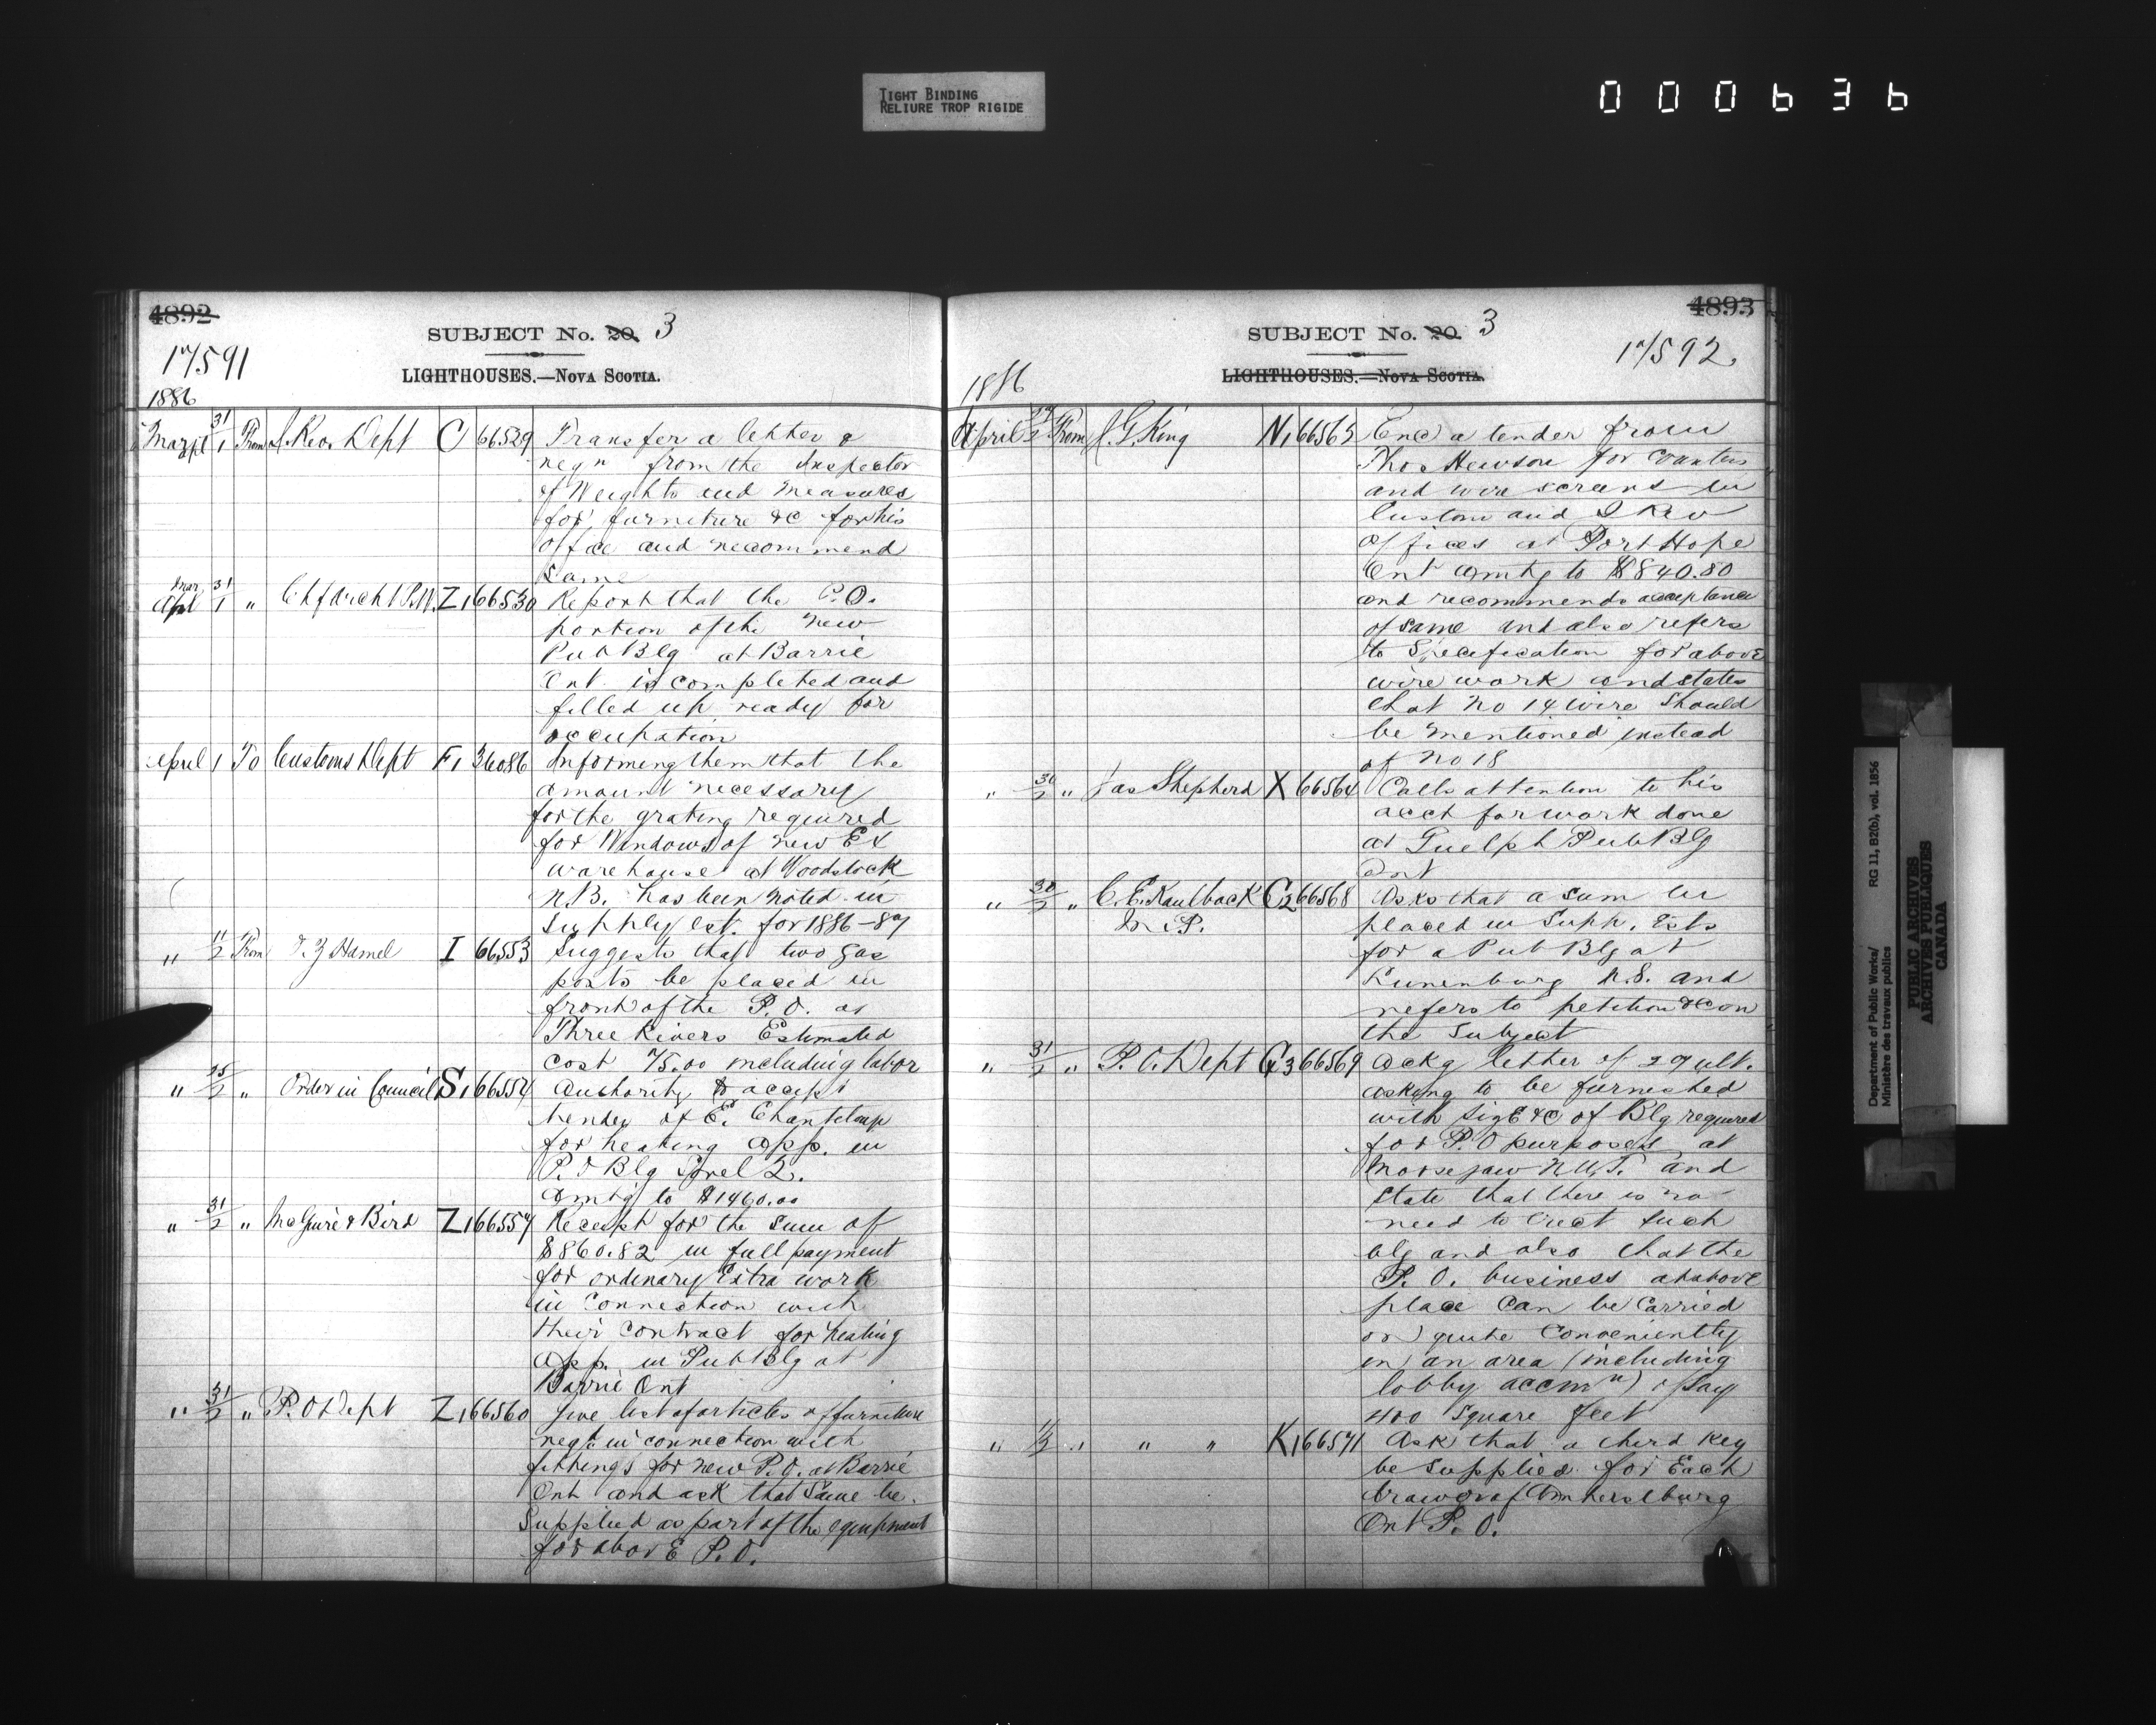 TIGHT BINDING
RELIURE TROP RIGIDE
000636
4892
SUBJECT No. 20. 3
17591
LIGHTHOUSES.—NOVA SCOTIA.
1886
Mar apl 31/1 From I. Rev. Dept C 66529 Transfer a letter &
reqn from the Inspector
of Weights and Measures
for furniture &c for his
office and recommend
same
Mar April 31/1 " Chf Archt P.W. Z1 66530 Report that the P.O.
portion of the new
Pub Blg at Barrie
Ont. is completed and
filled up ready for
occupation
April 1 To Customs Dept F1 36086 Informing them that the
amount necessary
for the grating required
for Windows of new Ex
warehouse at Woodstock
N.B. has been noted in
Supply est. for 1886-87
" 11/2 From T. Z Hamel I 66553 Suggests that two gas
posts be placed in
front of the P.O. at
Three Rivers Estimated
cost 75.00 including labor
" 25/2 " Order in Council S1 66554 Authority to accept
tender of E. Chanteloup
for heating app. in
P.O Blg Sorel Q.
amtg to $1460.00
" 31/2 " McGuire & Bird Z1 66557 Receipt for the sum of
$860.82 in full payment
for ordinary Extra work
in connection with
their contract for heating
app. in Pub Blg at
Barrie Ont
" 31/2 " P.O Dept Z1 66560 Give list of articles of furniture
reqd in connection with
fittings for new P.O. at Barrie
Ont and ask that same be
Supplied as part of the equipment
for above P.O.
4893
SUBJECT No. 20. 3
17592
LIGHTHOUSES.—NOVA SCOTIA.
1886
April From J. G. King N1 66563 Encd a tender from
Thos Hewson for counters
and wire screens in
Custom and I Rev
offices at Port Hope
Ont amtg to $840.80
and recommends acceptance
of same and also refers
to Specification for above
wire work and states
that No 14 wire should
be mentioned instead
of No 18
" 30/2 " Jas Shepherd X 66564 Calls attention to his
acct for work done
at Guelph Pub Blg
Ont
" 30/2 " C. E. Kaulback C2 66568 Asks that a sum be
M.P. placed in Supp. Ests
for a Pub Blg at
Lunenburg N.S. and
refers to petition &c on
the subject
" 31/2 " P.O. Dept G3 66569 Ackg letter of 29 ult.
asking to be furnished
with size &c of Blg required
for P.O purposes at
Moosejaw N.W.T. and
state that there is no
need to erect such
blg and also that the
P.O. business at above
place can be carried
on quite conveniently
in an area (including
lobby accmn) of say
400 square feet
" 1/2 " " " K1 66571 Ask that a third key
be supplied for each
drawer of Amherstburg
Ont P.O.
Department of Public Works/
Ministère des travaux publics
RG 11, B2(b), vol. 1856
PUBLIC ARCHIVES
ARCHIVES PUBLIQUES
CANADA